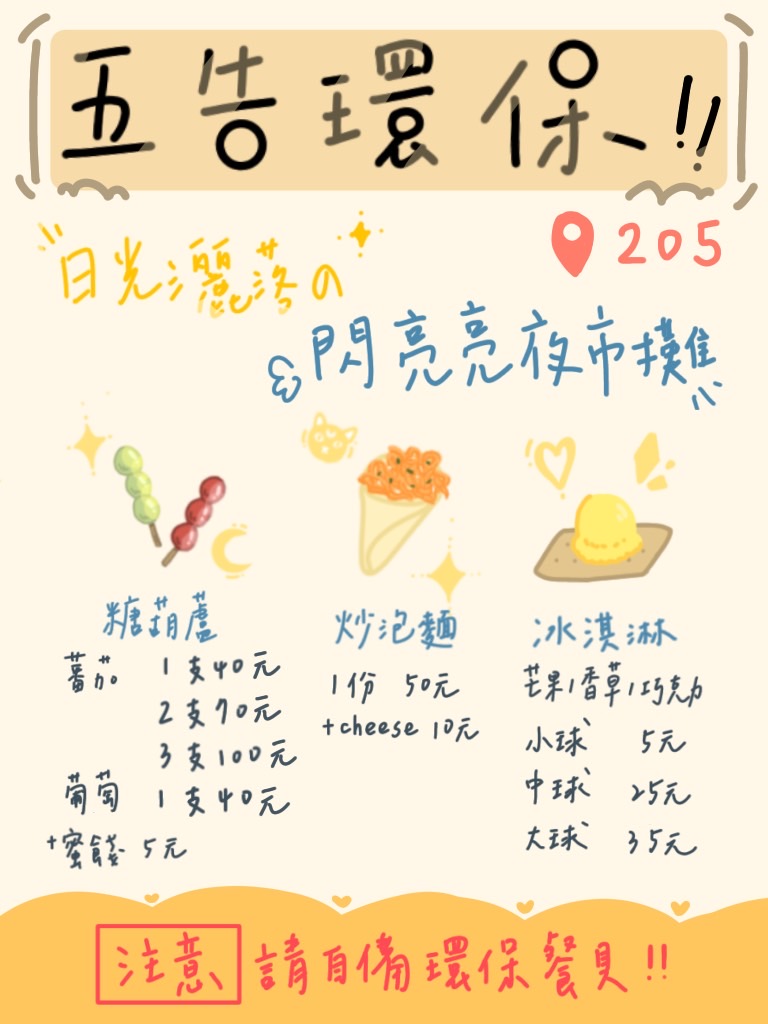 五告環保!!
205
日光灑落の
閃亮亮夜市攤
糖葫蘆
蕃茄 1支40元
2支70元
3支100元
葡萄 1支40元
+蜜餞 5元
炒泡麵
1份 50元
+cheese 10元
冰淇淋
芒果/香草/巧克力
小球 5元
中球 25元
大球 35元
注意 請自備環保餐具!!